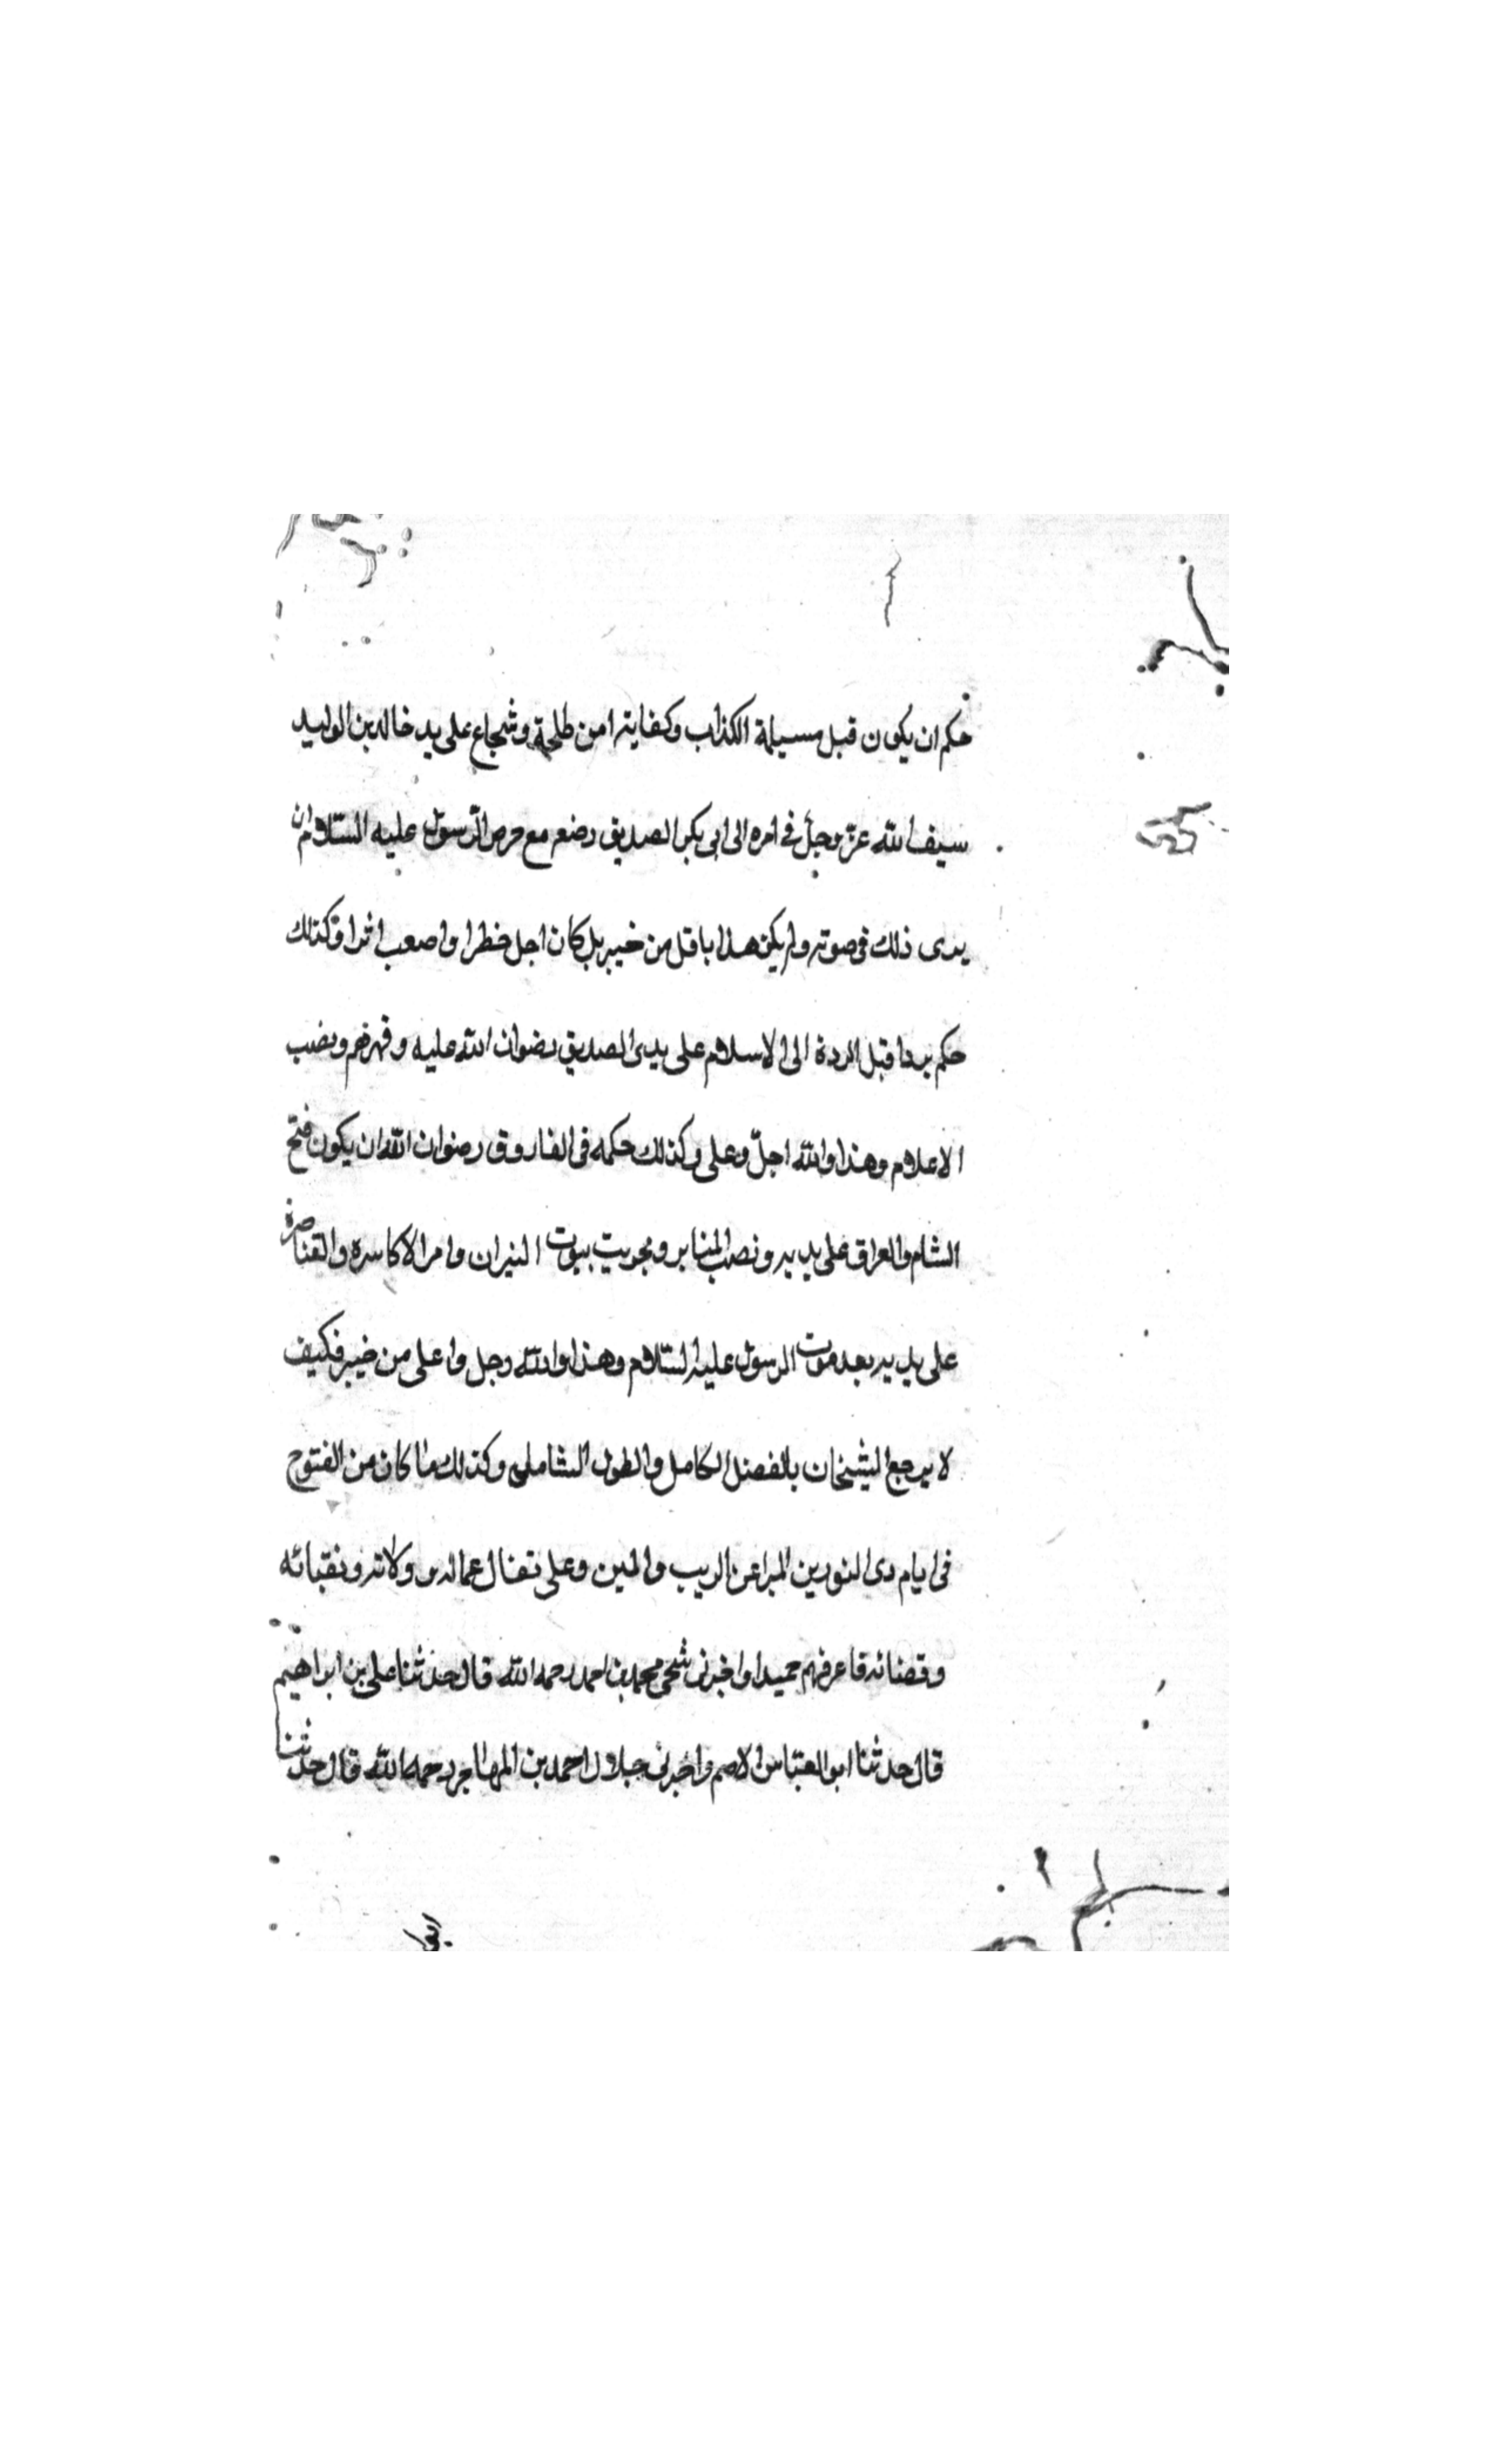 حكم ان يكون قبل مسيلمة الكذاب وكفايته امن طلحة وشجاع على يد خالد بن الوليد
سيف الله عز وجل في امره الى ابى بكر الصديق رضعه مع حرص الرسول عليه السلام ان
يرى ذلك في صوته ولم يكن هذا باقل من خيبر بل كان اجل خطرا واصعب اثرا وكذلك
حكم بردنا قبل الردة الى الاسلام على يدى الصديق رضوان الله عليه وقهرهم ونصب
الاعلام وهذا والله اجلّ وعلى وكذلك حكمه فى الفاروق رضوان الله ان يكون فتح
الشام والعراق على يديه ونصب المنابر ومجويت بيوت النيران وامر الاكاسره والقناصرة
على يديه بعد موت الرسول عليه السّلام وهذا والله وجل واعلى من خيبر فكيف
لا يرجع الشيخان بالفضل الكامل والطول الشامل وكذلك ما كان من الفتوح
فى ايام دى النورين المبرا عن الريب والمين وعلى تفال عماله وولاته ونقبائه
وقضائه فاعرفهم حميدا واخبرنى شحى محمد بن احمد رحمه الله قال حدثنا على بن ابراهيم
قال حدثنا ابو العباس الاصم واخبرنى جلال احمد بن المهاجر رحمه الله قال حدثنا